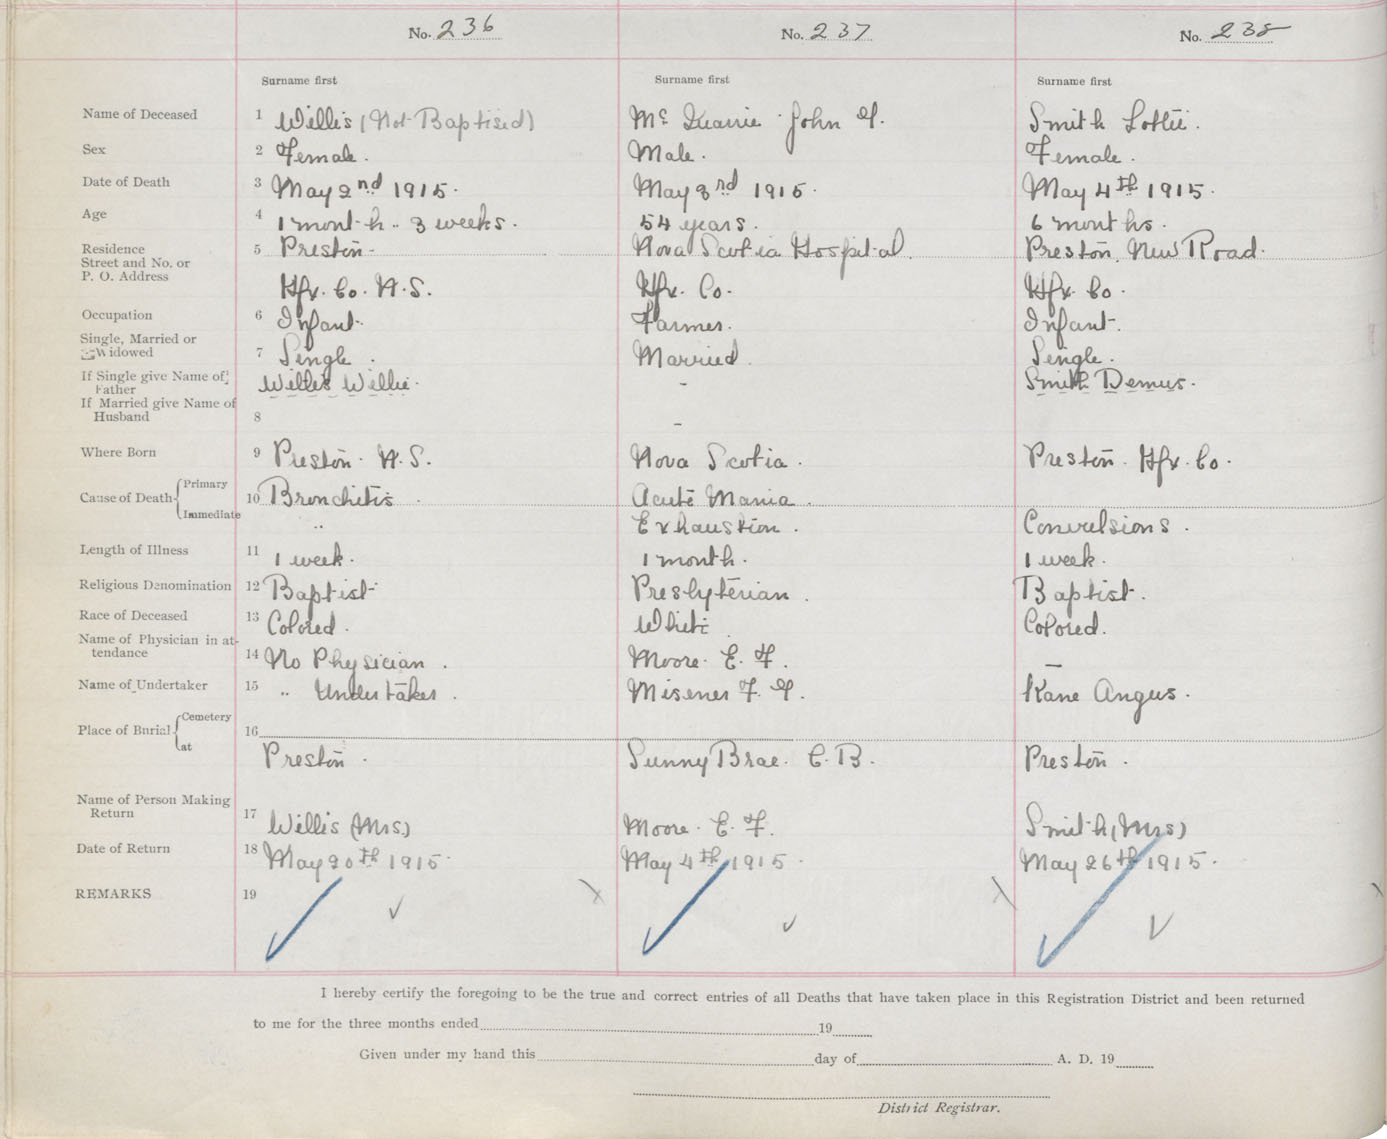 No. 236 No. 237 No. 238
Surname first Surname first Surname first
Name of Deceased 1 Willis (Not Baptised) Mc Quarrie John G. Smith Lottie.
Sex 2 Female. Male. Female.
Date of Death 3 May 2nd 1915. May 3rd 1915. May 4th 1915.
Age 4 1 month.. 3 weeks. 54 years. 6 months.
Residence 5 Preston- Nova Scotia Hospital. Preston, New Road.
Street and No. or
P. O. Address Hfx. Co. N.S. Hfx. Co. Hfx. Co.
Occupation 6 Infant. Farmer. Infant.
Single, Married or
Widowed 7 Single. Married Single.
If Single give Name of Father Willis Willie. - Smith Demus.
If Married give Name of
Husband 8 -
Where Born 9 Preston. N.S. Nova Scotia. Preston. Hfx. Co.
Cause of Death Primary 10 Bronchitis. Acute Mania.
Immediate " Exhaustion. Convulsions.
Length of Illness 11 1 week. 1 month. 1 week.
Religious Denomination 12 Baptist Presbyterian. Baptist.
Race of Deceased 13 Colored. White Colored.
Name of Physician in attendance 14 No Physician. Moore. E. F. —
Name of Undertaker 15 " Undertaker. Misener F. G. Kane Angus.
Place of Burial Cemetery 16
at Preston. Sunny Brae. C. B. Preston.
Name of Person Making
Return 17 Willis (Mrs.) Moore. E. F. Smith, (Mrs)
Date of Return 18 May 20th 1915. May 4th 1915. May 26th 1915.
REMARKS 19
I hereby certify the foregoing to be the true and correct entries of all Deaths that have taken place in this Registration District and been returned
to me for the three months ended 19
Given under my hand this day of A. D. 19
District Registrar.